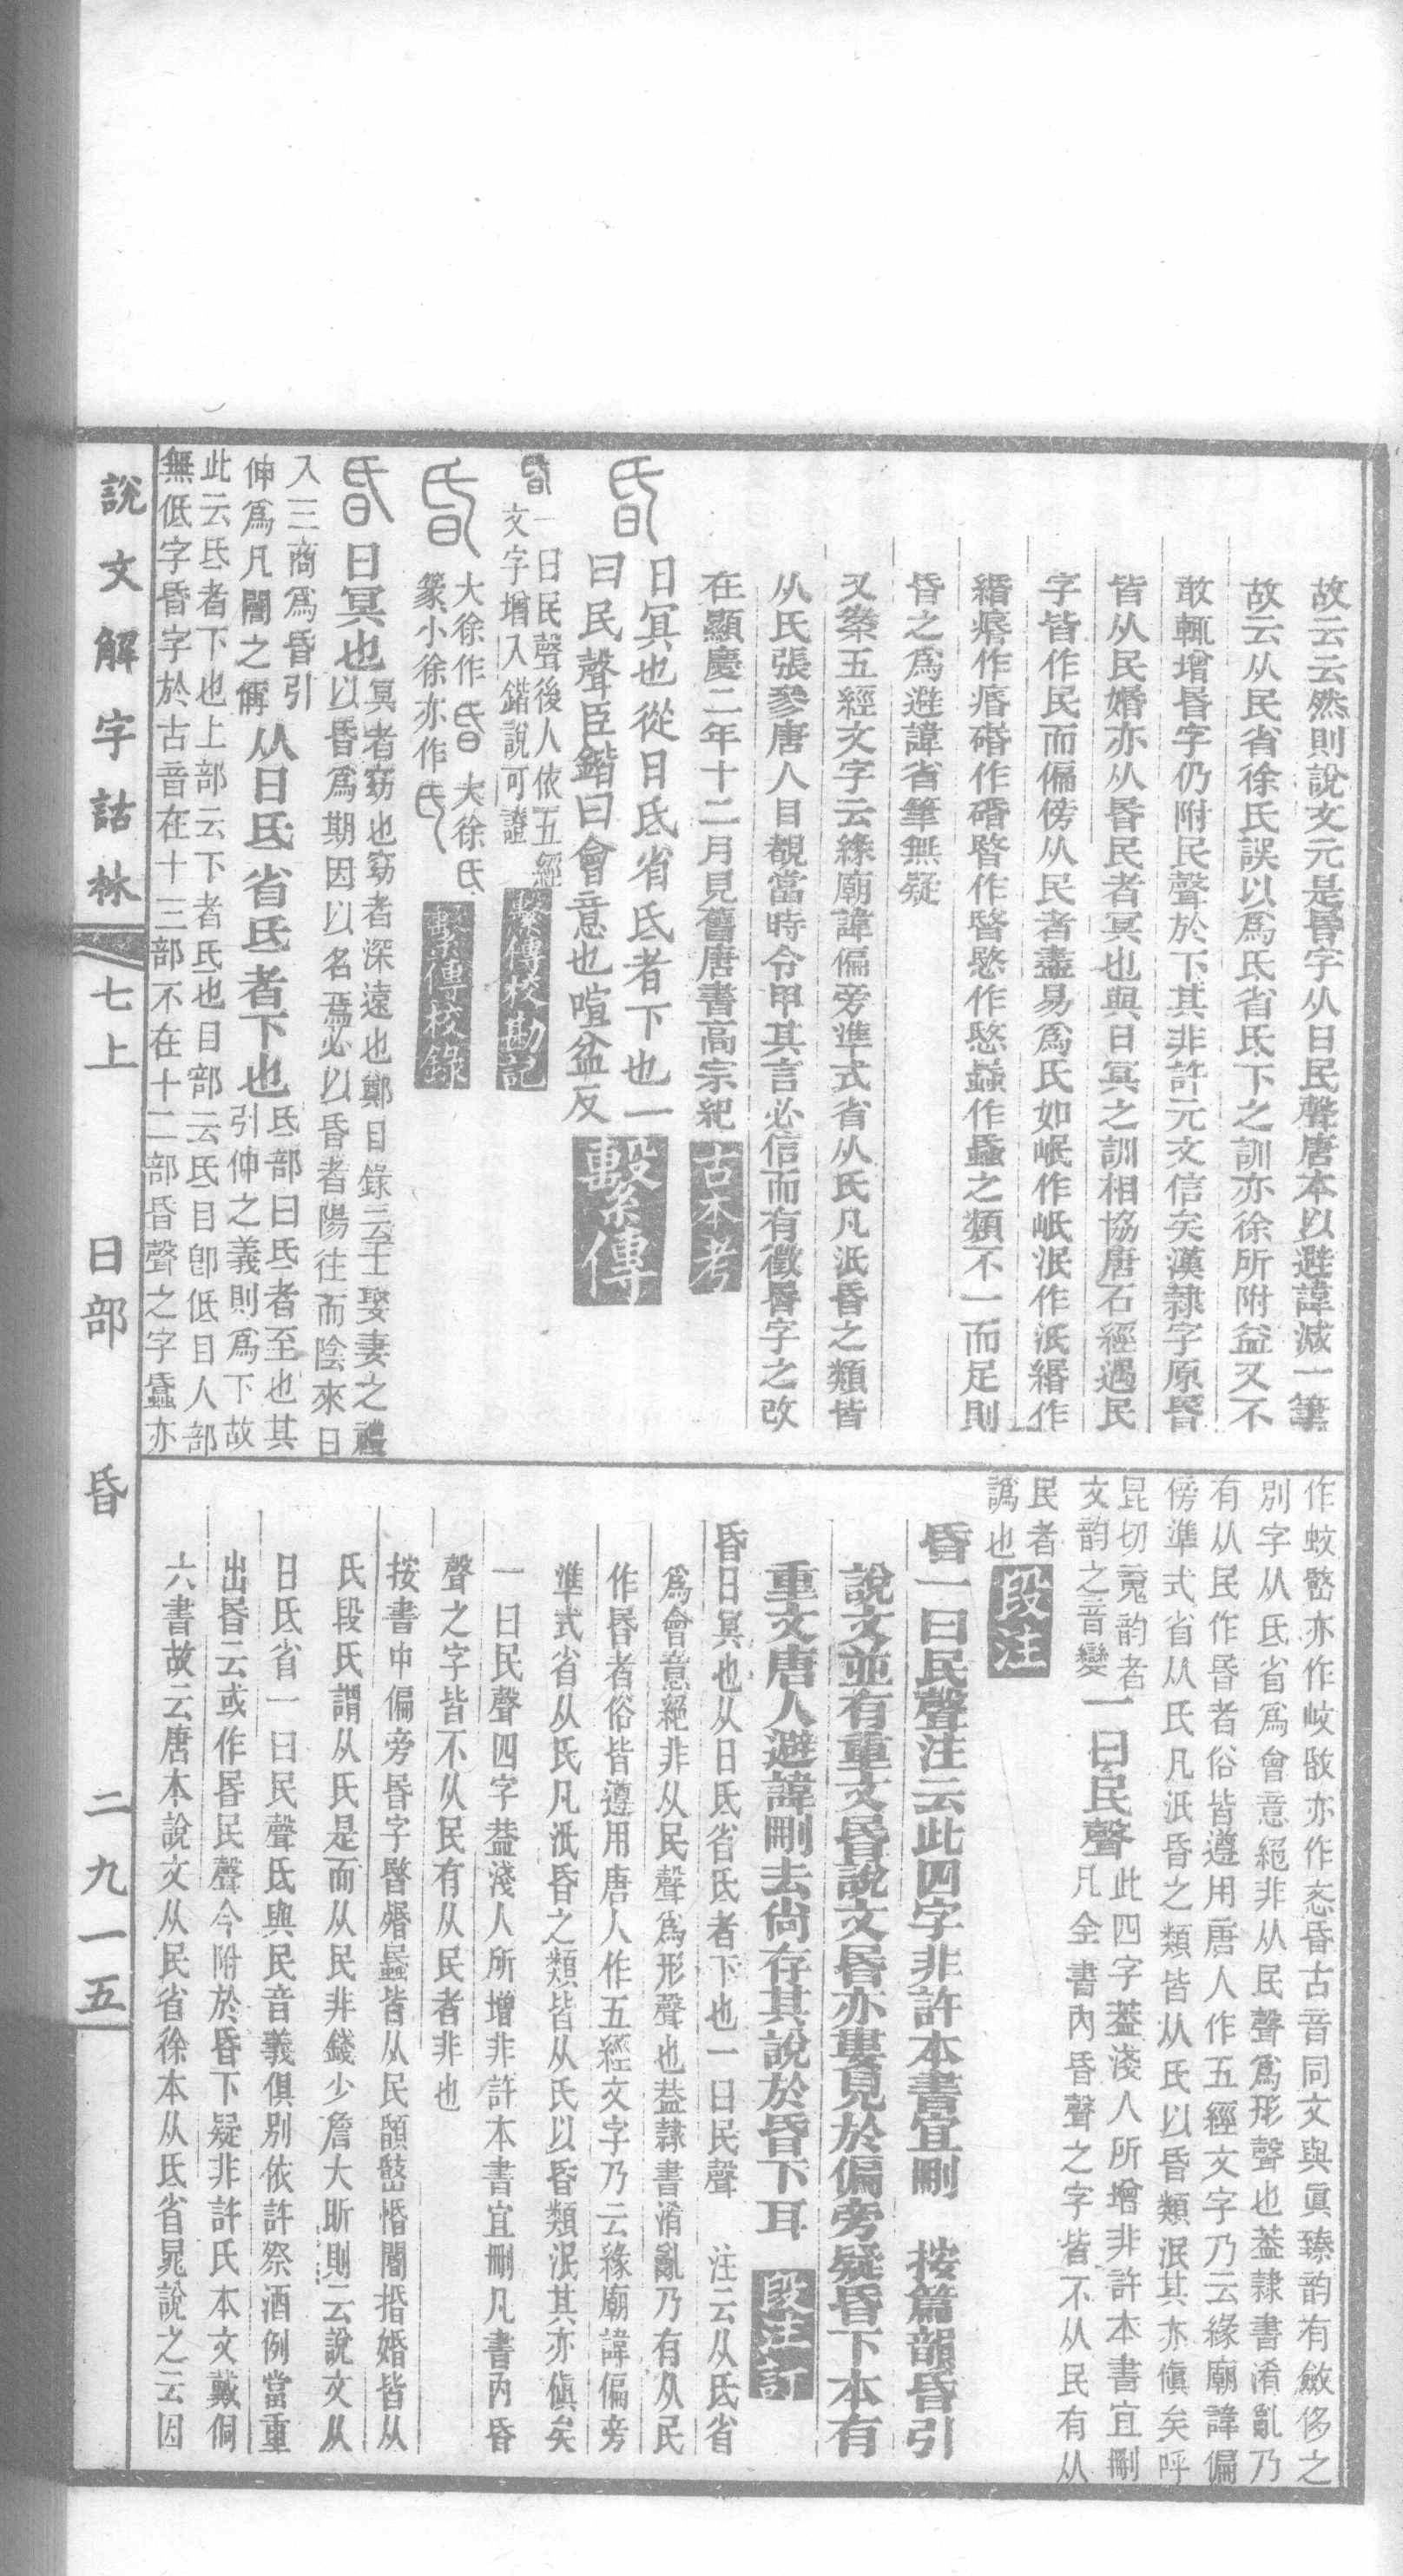 故云云然則說文元是昬字从日民聲唐本以避諱減一筆
故云从民省徐氏誤以爲氐省氐下之訓亦徐所附益又不
敢輒增昬字仍附民聲於下其非許元文信矣漢隸字原昬
皆从民婚亦从昬民者冥也與日冥之訓相協唐石經遇民
字皆作民而偏傍从民者盡易爲氏如岷作岻泯作泜緡作
緍痻作痻碈作碈暋作暋愍作愍蟁作蟁之類不一而足則
昏之爲避諱省筆無疑
又案五經文字云緣廟諱偏旁準式省从氏凡泜昏之類皆
从氏張參唐人目覩當時令甲其言必信而有徵昬字之改
在顯慶二年十二月見舊唐書高宗紀 古本考
昏 日冥也從日氐省氐者下也一
曰民聲臣鍇曰會意也喧盆反 繫傳
昏 一曰民聲後人依五經
文字增入鍇說可證 繫傳校勘記
昏 大徐作昏大徐氐
篆小徐亦作氏 繫傳校錄
昏 日冥也 冥者窈也窈者深遠也鄭目錄云士娶妻之禮
以昏爲期因以名焉必以昏者陽往而陰來日
入三商爲昏引
伸爲凡闇之偁 从日氐省氐者下也 氐部曰氐者至也其
引伸之義則爲下故
此云氐者下也上部云下者氐也目部云氐目卽低目人部
無低字昏字於古音在十三部不在十二部昏聲之字蟁亦
作蚊𢞬亦作㟭敃亦作忞昏古音同文與眞臻韵有斂侈之
別字从氐省爲會意絕非从民聲爲形聲也葢隸書淆亂乃
有从民作昬者俗皆遵用唐人作五經文字乃云緣廟諱偏
傍準式省从氏凡泜昏之類皆从氏以昏類泯其亦傎矣呼
昆切䰟韵者
文韵之音變 一曰民聲 此四字葢淺人所增非許本書宜刪
凡全書內昏聲之字皆不从民有从
民者
譌也 段注
昏一曰民聲注云此四字非許本書宜刪 按篇韻昏引
說文並有重文昬說文昬亦婁見於偏旁疑昏下本有
重文唐人避諱刪去尙存其說於昏下耳 段注訂
昏日冥也从日氐省氐者下也一曰民聲 注云从氐省
爲會意絕非从民聲爲形聲也葢隸書淆亂乃有从民
作昬者俗皆遵用唐人作五經文字乃云緣廟諱偏旁
準式省从氏凡泜昏之類皆从氏以昏類泯其亦傎矣
一曰民聲四字葢淺人所增非許本書宜刪凡書內昏
聲之字皆不从民有从民者非也
按書中偏旁昏字暋婚蟁皆从民顝𢞬惛闇捪婚皆从
氏段氏謂从氏是而从民非錢少詹大昕則云說文从
日氐省一曰民聲氐與民音義俱別依許祭酒例當重
出昬云或作昬民聲今附於昏下疑非許氏本文戴侗
六書故云唐本說文从民省徐本从氐省晁說之云因
說文解字詁林 七上 日部 昏 二九一五